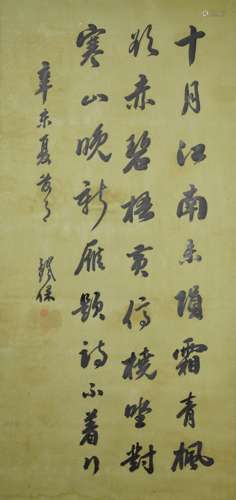 十月江南未隕霜青楓
欲赤碧梧黃停橈坐對
寒山晚新雁題詩小着行
辛未夏
鐵保